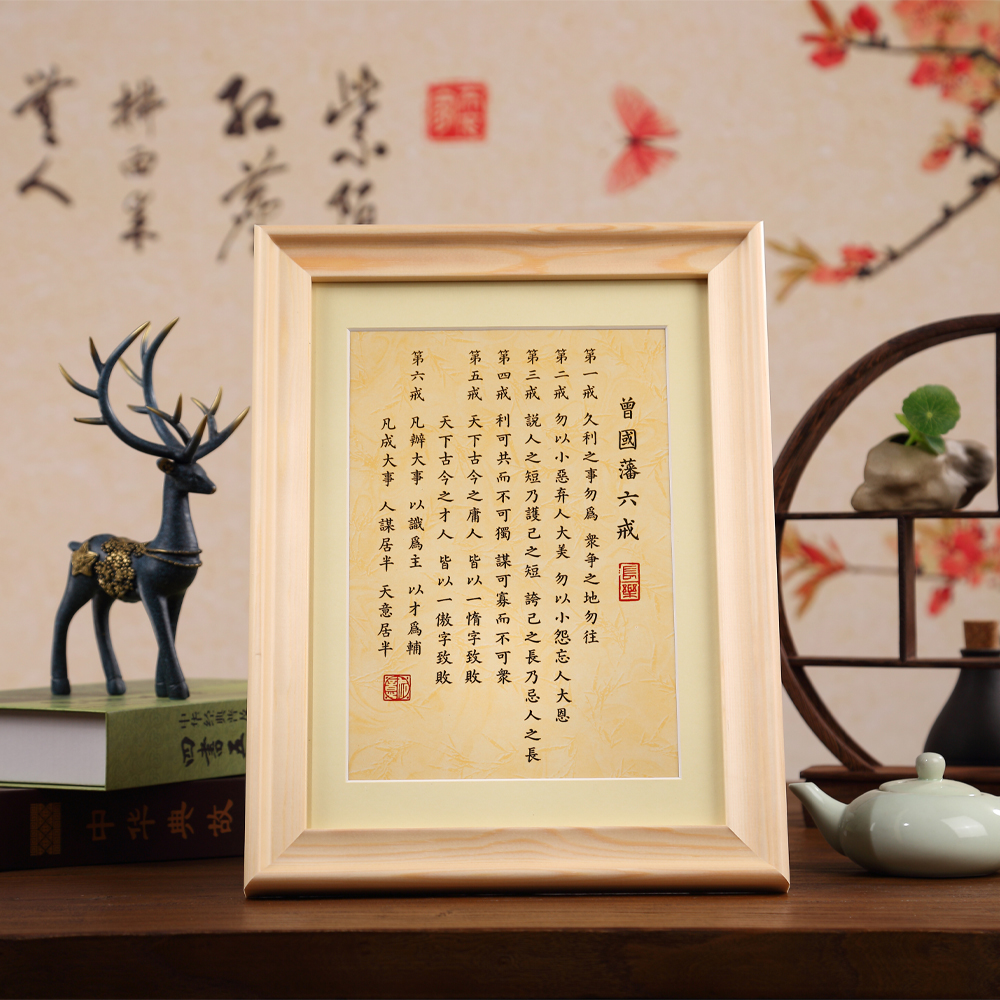 曾國藩六戒
長樂
第一戒 久利之事勿爲 衆争之地勿往
第二戒 勿以小惡弃人大美 勿以小怨忘人大恩
第三戒 説人之短乃護己之短 誇己之長乃忌人之長
第四戒 利可共而不可獨 謀可寡而不可衆
第五戒 天下古今之庸人 皆以一惰字致敗
天下古今之才人 皆以一傲字致敗
第六戒 凡辦大事 以識爲主 以才爲輔
凡成大事 人謀居半 天意居半
四書五
中华典故